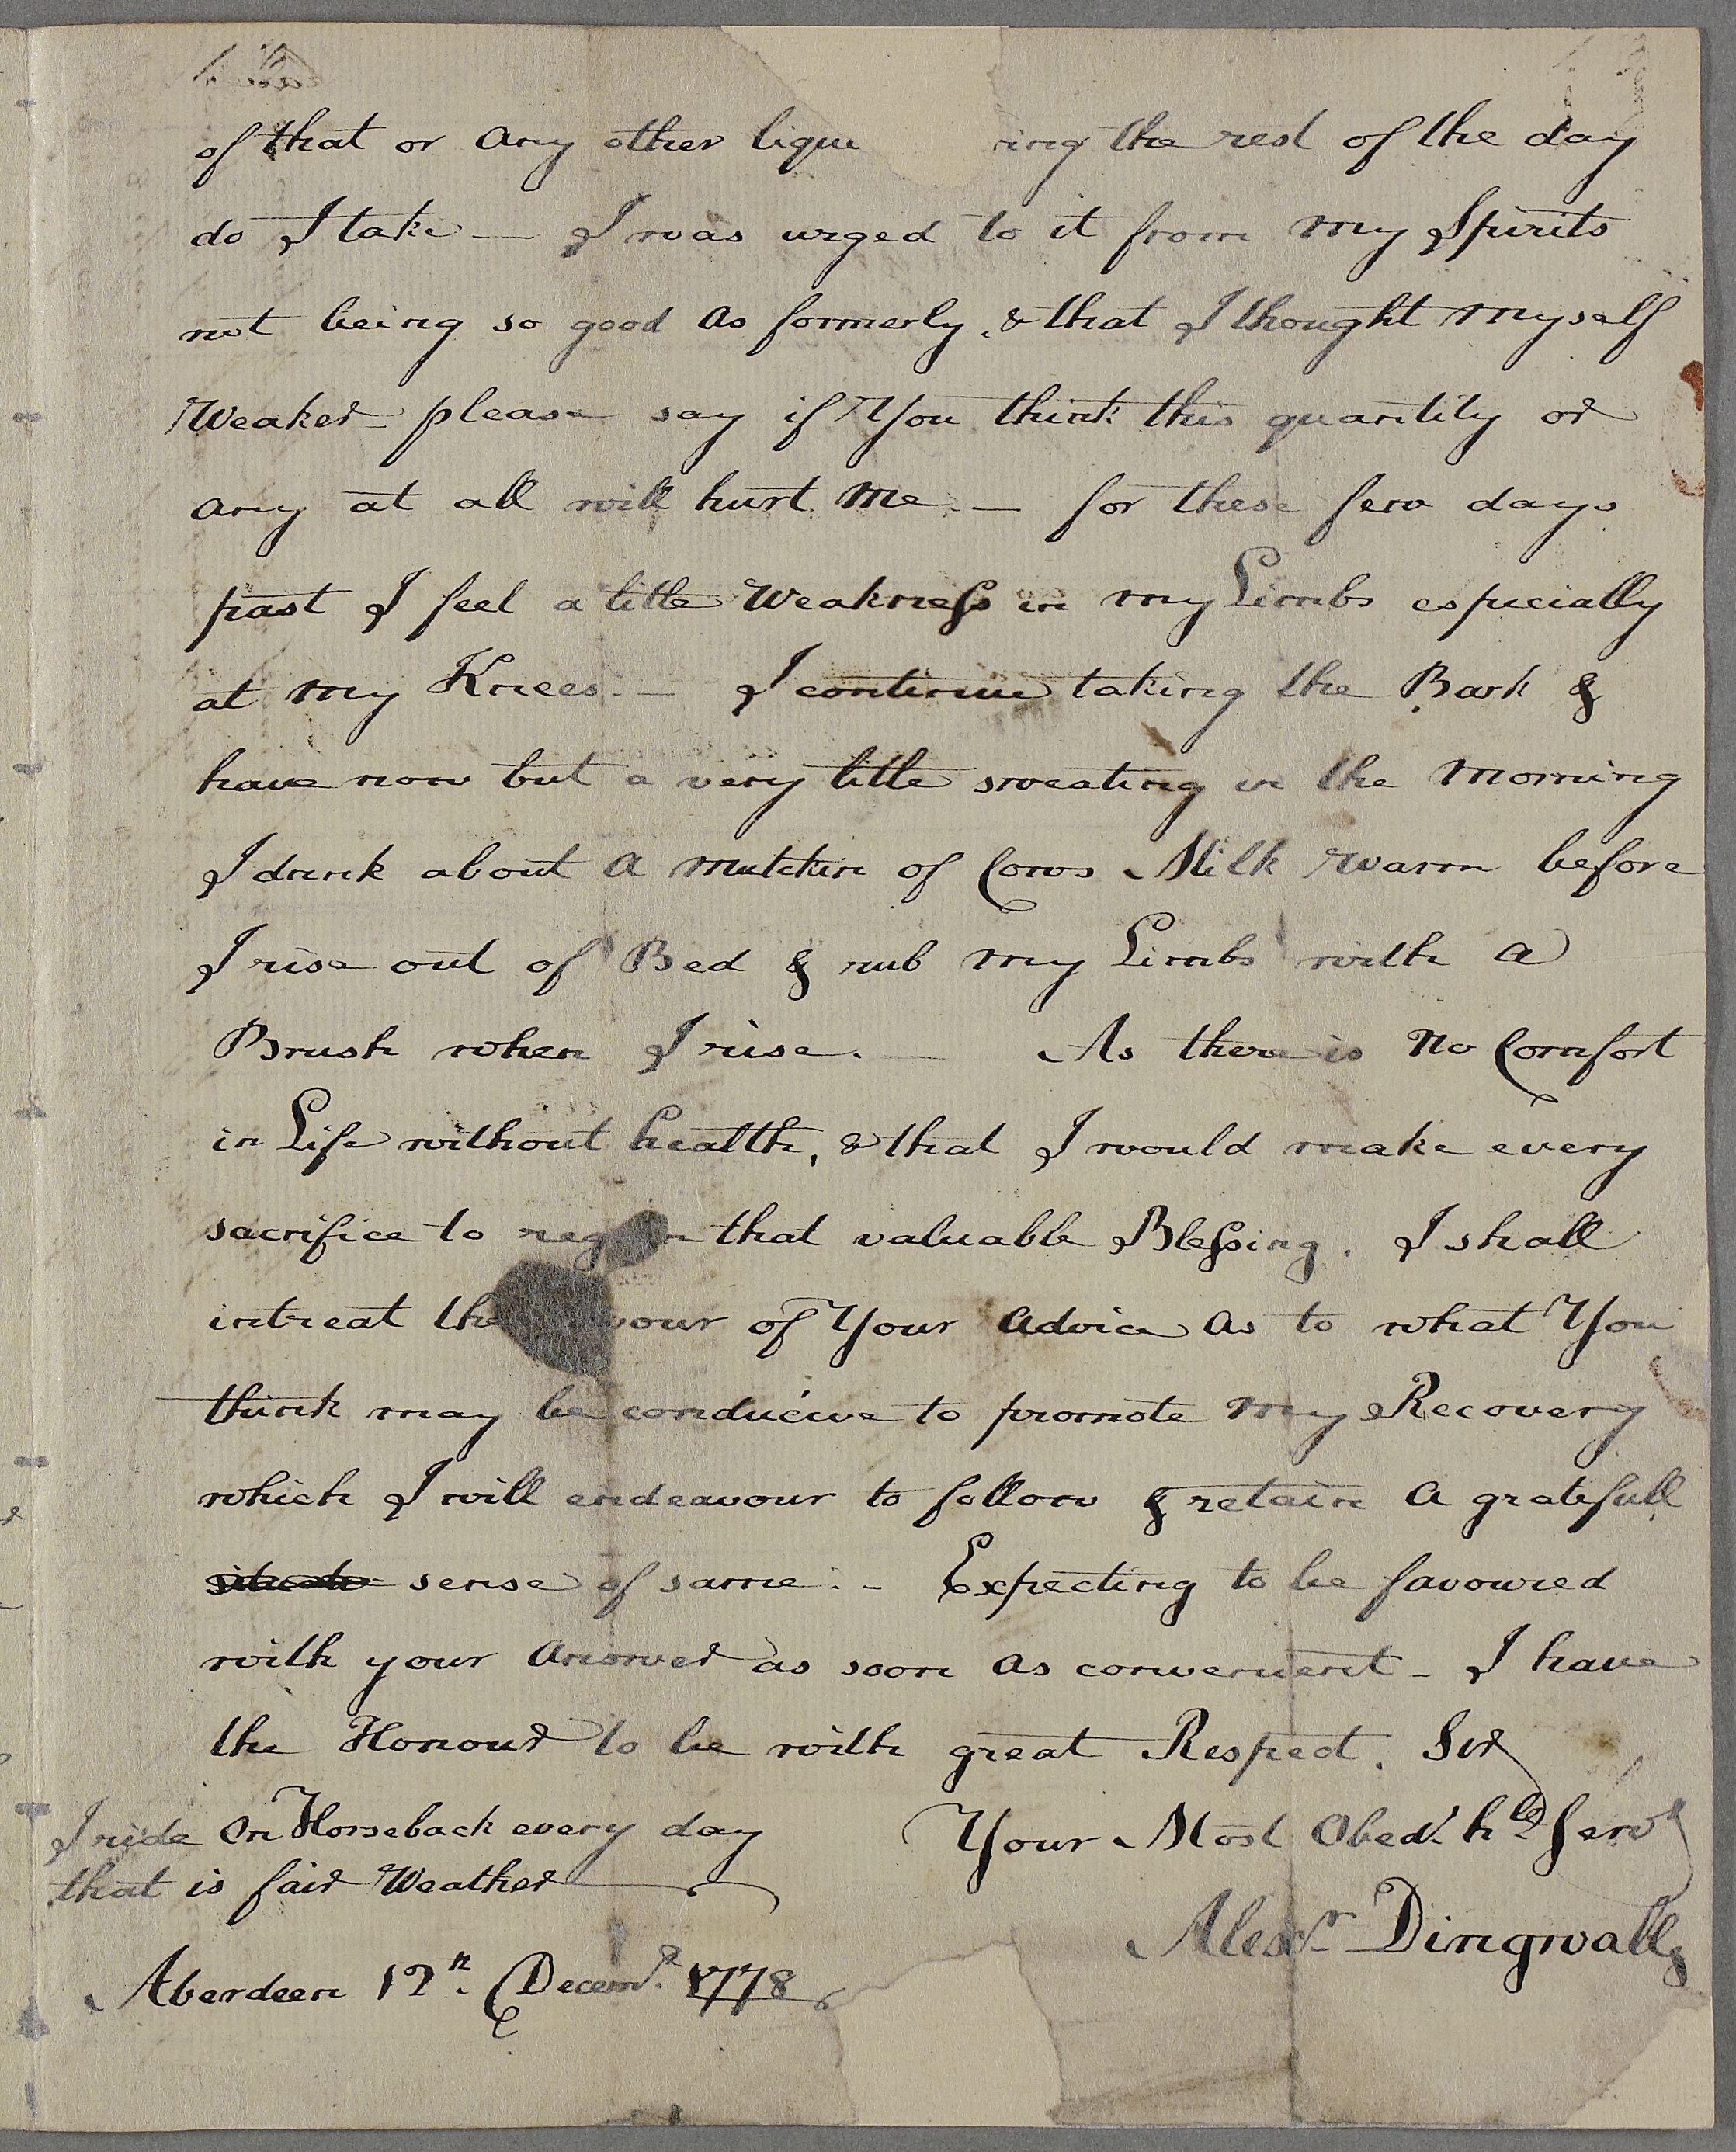 of that or any other liqu ring the rest of the day
do I take — I was urged to it from my Spirits
not being so good as formerly, & that I thought myself
Weaker please say if You think this quantity or
any at all will hurt me. — for these few days
past I feel a little Weakneſs in my Limbs especially
at my Knees. — I continue taking the Bark &
have now but a very little sweating in the Morning
I drink about a mutchkin of Cows Milk warm before
I rise out of Bed & rub my Limbs with a
Brush when I rise. — As there is no Comfort
in Life without health, & that I would make every
sacrifice to regain that valuable Bleſsing. I shall
intreat the favour of Your advice as to what You
think may be conducive to promote my Recovery
which I will endeavour to follow & retain a gratefull
sense of same. - Expecting to be favoured
with your answer as soon as convenient - I have
the Honour to be with great Respect. Sir
Your Most Obedt. hle Servt
Alexr. Dingwall
I ride on Horseback every day
that is fair Weather
Aberdeen 12th. Decemr. 1778